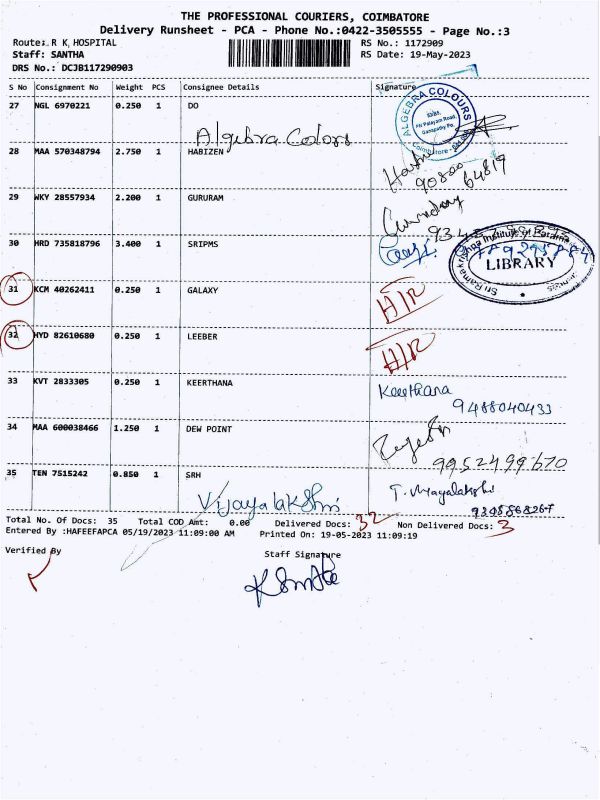 THE PROFESSIONAL COURIERS, COIMBATORE
Delivery Runsheet - PCA - Phone No.:0422-3505555 - Page No.:3
Route: R K HOSPITAL
RS No.: 1172909
Staff: SANTHA
RS Date: 19-May-2023
DRS No.: DCJB117290903
S No Consignment No Weight PCS Consignee Details Signature
27 NGL 6970221 0.250 1 DO
Algebra Colors
ALGEBRA COLOURS
28 MAA 570348794 2.750 1 HABIZEN
90800 64819
29 WKY 28557934 2.200 1 GURURAM
30 HRD 735818796 3.400 1 SRIPMS
Sri Ramakrishna Institute of Paramedical
LIBRARY
31 KCM 40262411 0.250 1 GALAXY
H/R
32 HYD 82610680 0.250 1 LEEBER
H/R
33 KVT 2833305 0.250 1 KEERTHANA
Keerthana
9488040433
34 MAA 600038466 1.250 1 DEW POINT
9952499670
35 TEN 7515242 0.850 1 SRH
Vijayalakshmi
T. Vijayalakshi
Total No. Of Docs: 35 Total COD Amt: 0.00 Delivered Docs: 32 Non Delivered Docs: 3
Entered By :HAFEEFAPCA 05/19/2023 11:09:00 AM Printed On: 19-05-2023 11:09:19
Verified By
Staff Signature